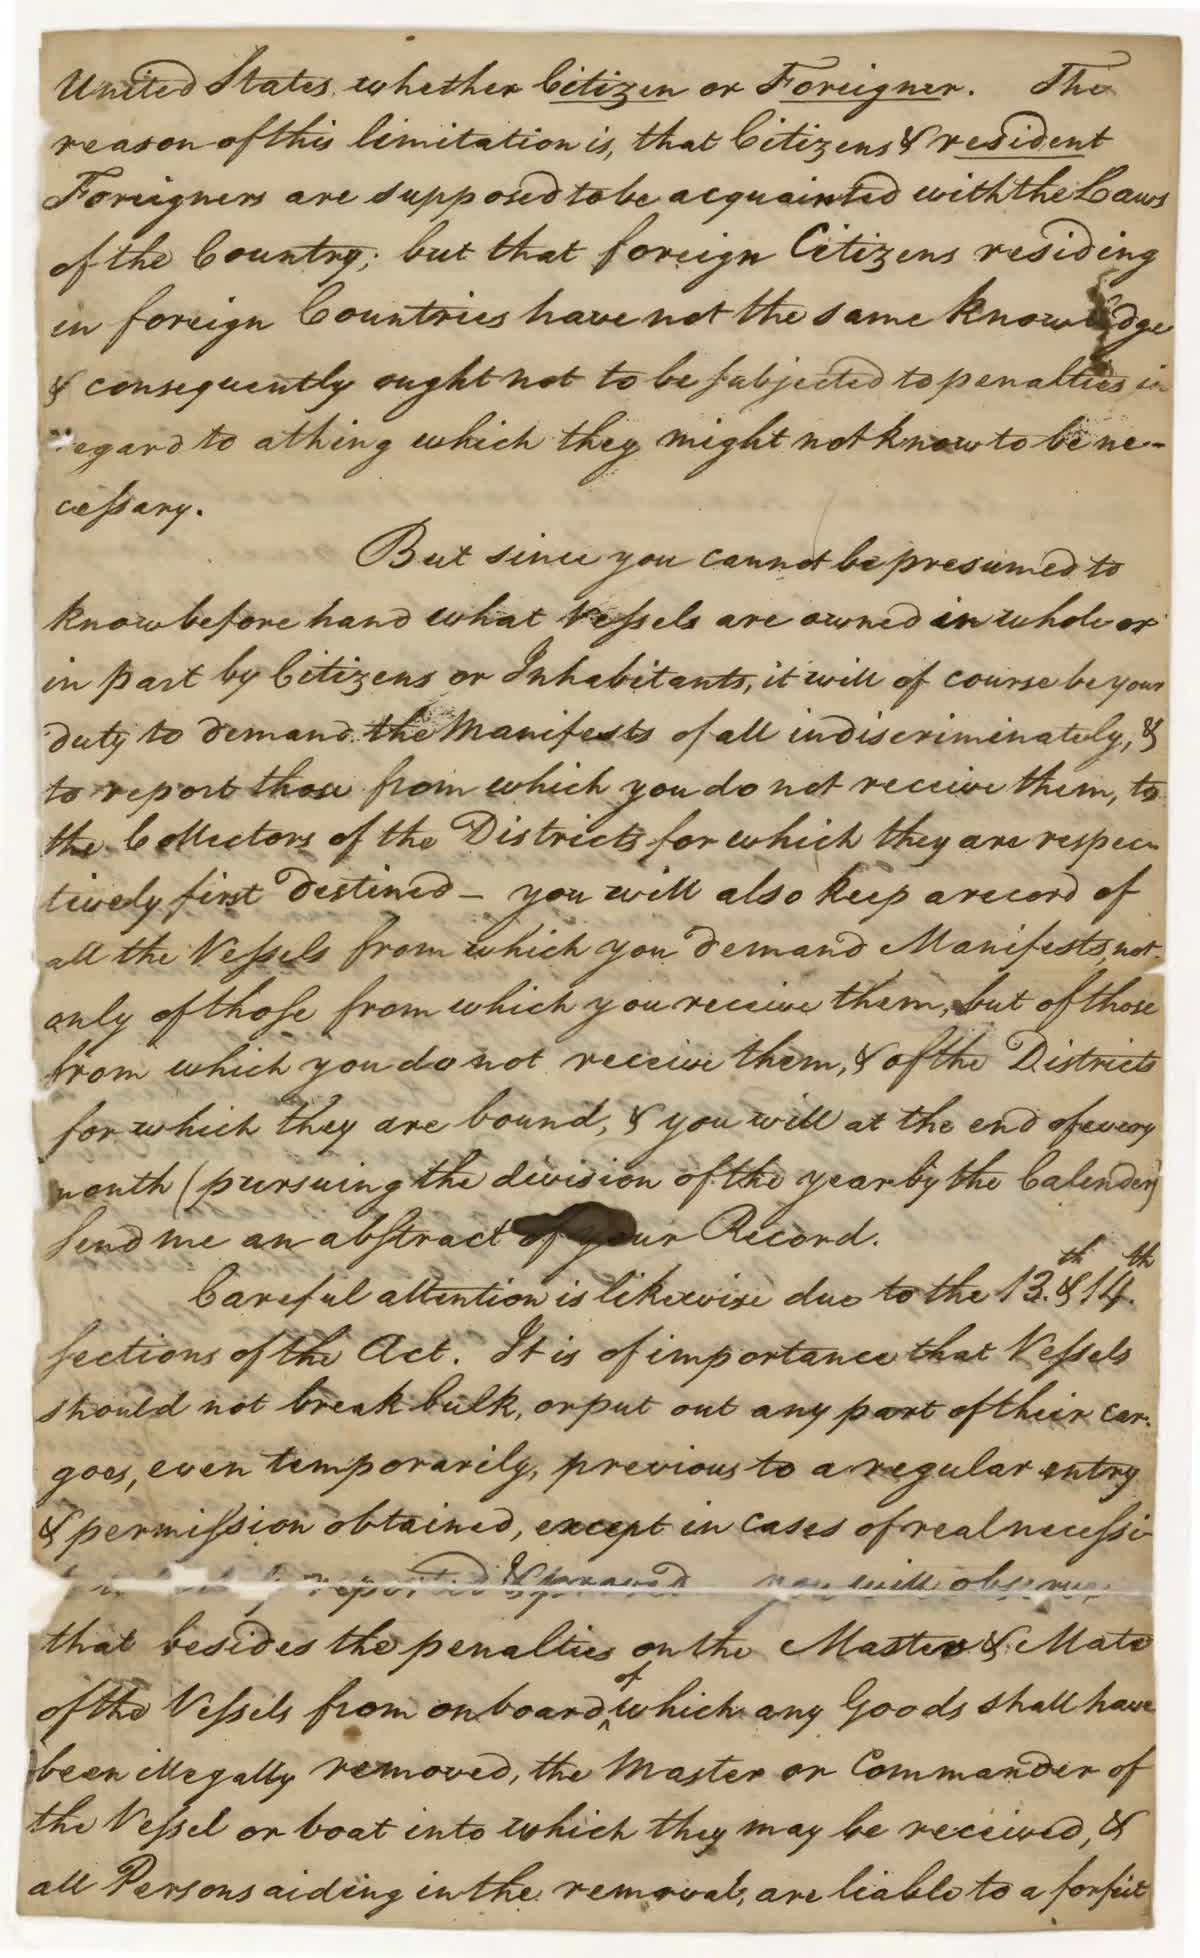 United States whether Citizen or Foreigner. The
reason of this limitation is, that Citizens & resident
Foreigners are supposed to be acquainted with the Laws
of the Country; but that foreign Citizens residing
in foreign Countries have not the same knowledge
& consequently ought not to be subjected to penalties in
regard to a thing which they might not know to be ne-
cessary.
But since you cannot be presumed to
know before hand what Vessels are owned in whole or
in part by Citizens or Inhabitants, it will of course be your
duty to demand the Manifests of all indiscriminately, &
to report those from which you do not receive them, to
the Collectors of the Districts for which they are respec-
tively first destined - you will also keep a record of
all the Vessels from which you demand Manifests, not
only of those from which you receive them, but of those
from which you do not receive them, & of the Districts
for which they are bound, & you will at the end of every
month (pursuing the division of the year by the Calender)
send me an abstract of your Record.
Careful attention is likewise due to the 13.th & 14.th
sections of the Act. It is of importance that Vessels
should not break bulk, or put out any part of their car-
goes, even temporarily, previous to a regular entry
& permission obtained, except in cases of real necessi-
reported & proved you will observe
that besides the penalties on the Master & Mate
of the Vessels from on board of which any Goods shall have
been illegally removed, the Master or Commander of
the Vessel or boat into which they may be received, &
all Persons aiding in the removal, are liable to a forfeit